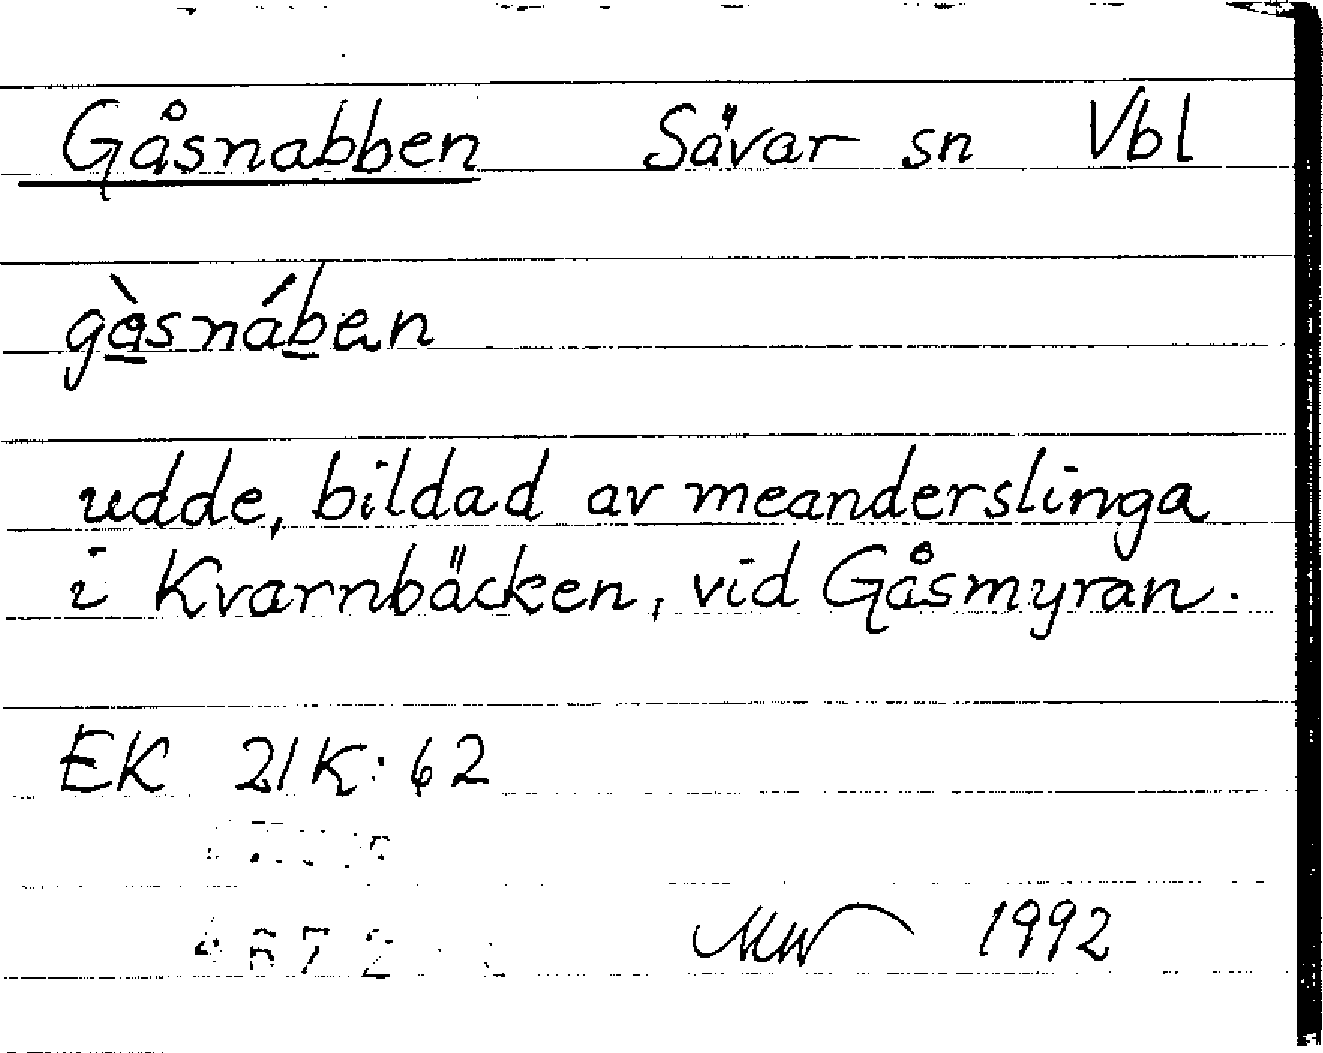 Gåsnabben Sävar sn Vbl
gå̀snáb̲en
udde, bildad av meanderslinga
i Kvarnbäcken, vid Gåsmyran.
EK 21K:62
MW 1992